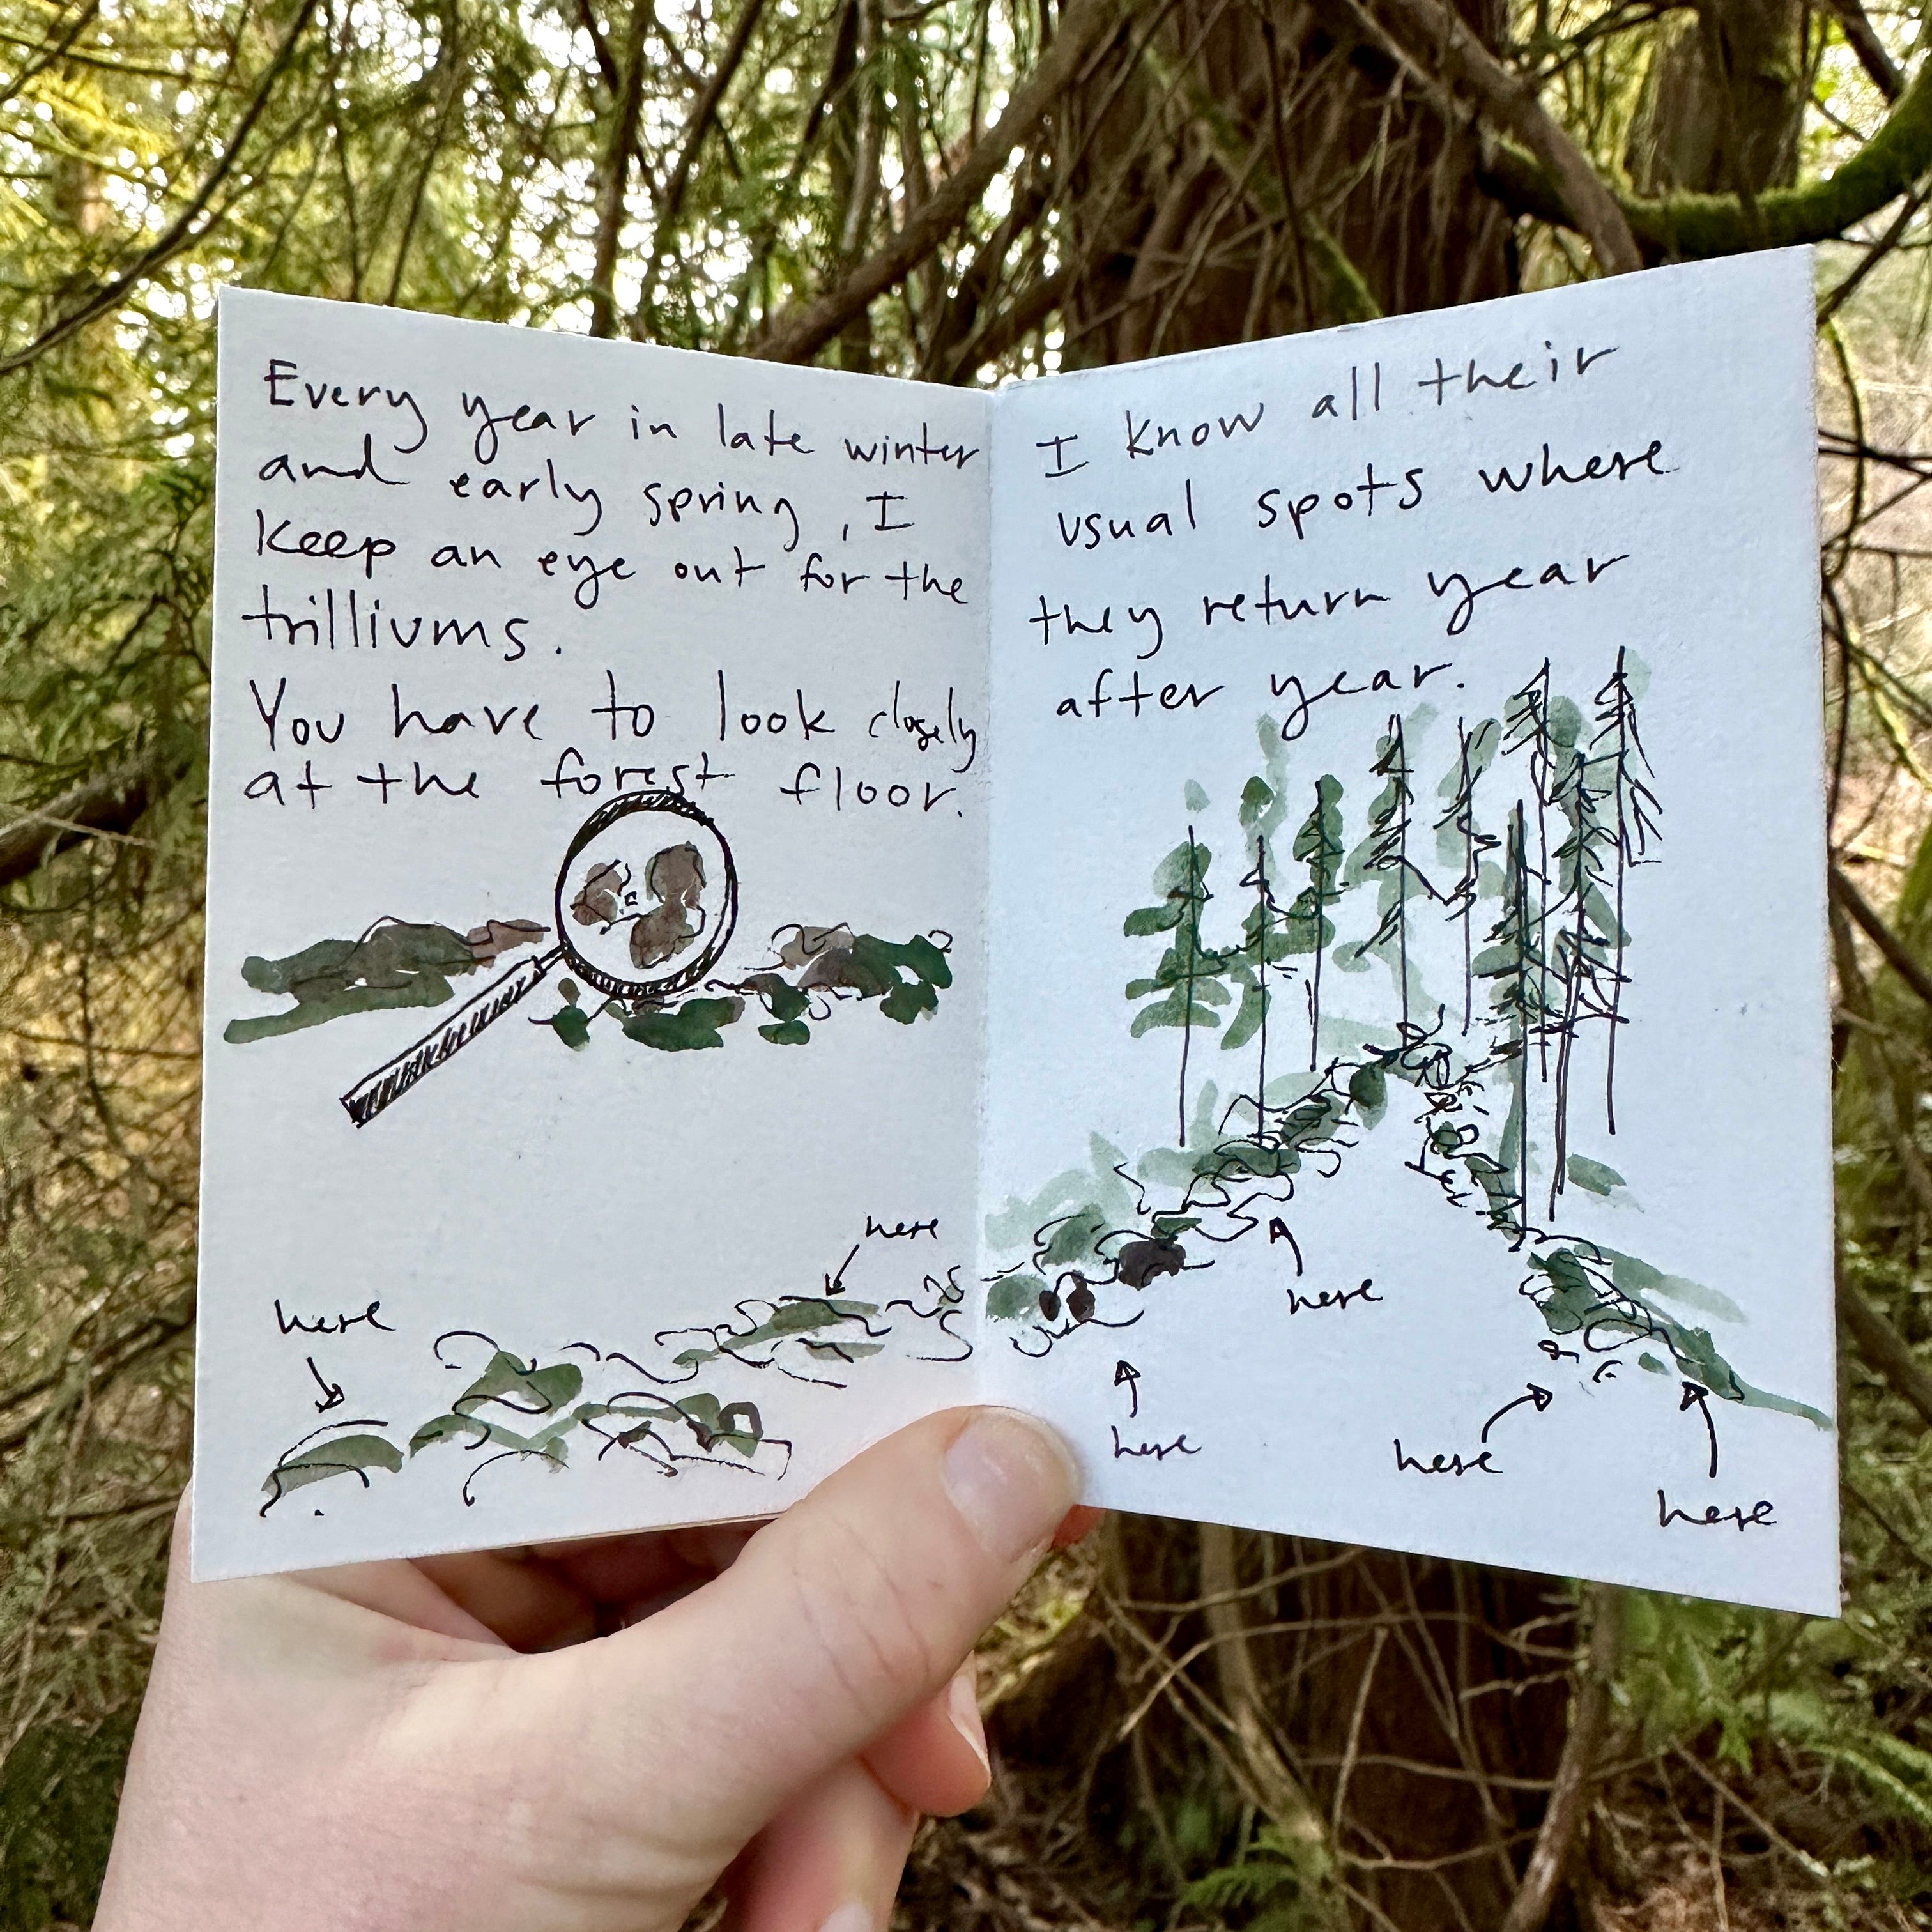 Every year in late winter
and early spring, I
keep an eye out for the
trilliums.
You have to look closely
at the forest floor.
here
here
I know all their
usual spots where
they return year
after year.
here
here
here
here